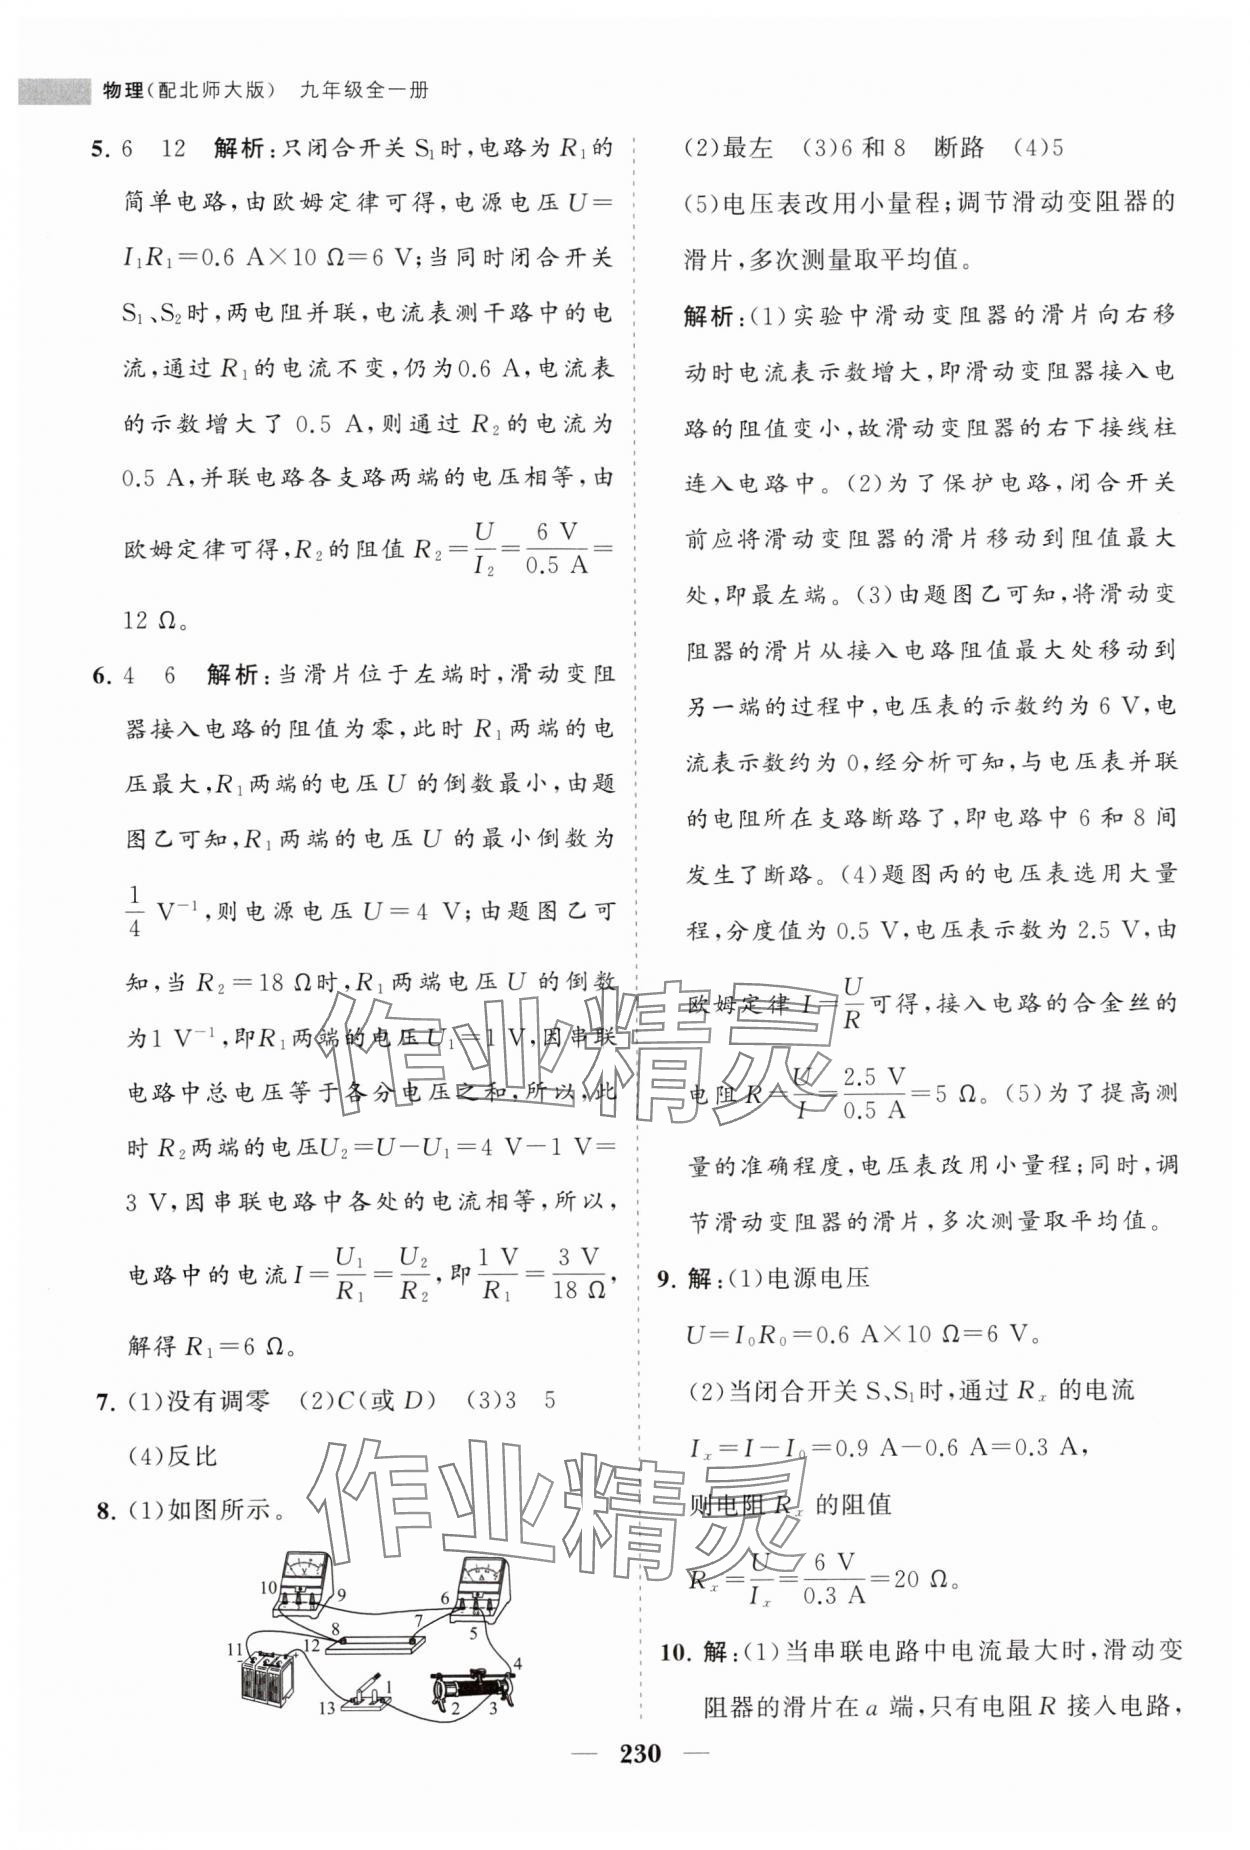 物理(配北师大版) 九年级全一册
5. 6 12 解析:只闭合开关S₁时,电路为R₁的
简单电路,由欧姆定律可得,电源电压U=
I₁R₁=0.6 A×10 Ω=6 V;当同时闭合开关
S₁、S₂时,两电阻并联,电流表测干路中的电
流,通过R₁的电流不变,仍为0.6 A,电流表
的示数增大了0.5 A,则通过R₂的电流为
0.5 A,并联电路各支路两端的电压相等,由
欧姆定律可得,R₂的阻值R₂=U/I₂=6 V/0.5 A=
12 Ω。
6. 4 6 解析:当滑片位于左端时,滑动变阻
器接入电路的阻值为零,此时R₁两端的电
压最大,R₁两端的电压U的倒数最小,由题
图乙可知,R₁两端的电压U的最小倒数为
1/4 V⁻¹,则电源电压U=4 V;由题图乙可
知,当R₂=18 Ω时,R₁两端电压U的倒数
为1 V⁻¹,即R₁两端的电压U₁=1 V,因串联
电路中总电压等于各分电压之和,所以,此
时R₂两端的电压U₂=U-U₁=4 V-1 V=
3 V,因串联电路中各处的电流相等,所以,
电路中的电流I=U₁/R₁=U₂/R₂,即1 V/R₁=3 V/18 Ω,
解得R₁=6 Ω。
7. (1)没有调零 (2)C(或D) (3)3 5
(4)反比
8. (1)如图所示。
10
9
6
5
8
7
11
12
4
13
1
2
3
(2)最左 (3)6和8 断路 (4)5
(5)电压表改用小量程;调节滑动变阻器的
滑片,多次测量取平均值。
解析:(1)实验中滑动变阻器的滑片向右移
动时电流表示数增大,即滑动变阻器接入电
路的阻值变小,故滑动变阻器的右下接线柱
连入电路中。(2)为了保护电路,闭合开关
前应将滑动变阻器的滑片移动到阻值最大
处,即最左端。(3)由题图乙可知,将滑动变
阻器的滑片从接入电路阻值最大处移动到
另一端的过程中,电压表的示数约为6 V,电
流表示数约为0,经分析可知,与电压表并联
的电阻所在支路断路了,即电路中6和8间
发生了断路。(4)题图丙的电压表选用大量
程,分度值为0.5 V,电压表示数为2.5 V,由
欧姆定律I=U/R可得,接入电路的合金丝的
电阻R=U/I=2.5 V/0.5 A=5 Ω。(5)为了提高测
量的准确程度,电压表改用小量程;同时,调
节滑动变阻器的滑片,多次测量取平均值。
9. 解:(1)电源电压
U=I₀R₀=0.6 A×10 Ω=6 V。
(2)当闭合开关S、S₁时,通过Rₓ的电流
Iₓ=I-I₀=0.9 A-0.6 A=0.3 A,
则电阻Rₓ的阻值
Rₓ=U/Iₓ=6 V/0.3 A=20 Ω。
10. 解:(1)当串联电路中电流最大时,滑动变
阻器的滑片在a端,只有电阻R接入电路,
作业精灵
作业精灵
— 230 —